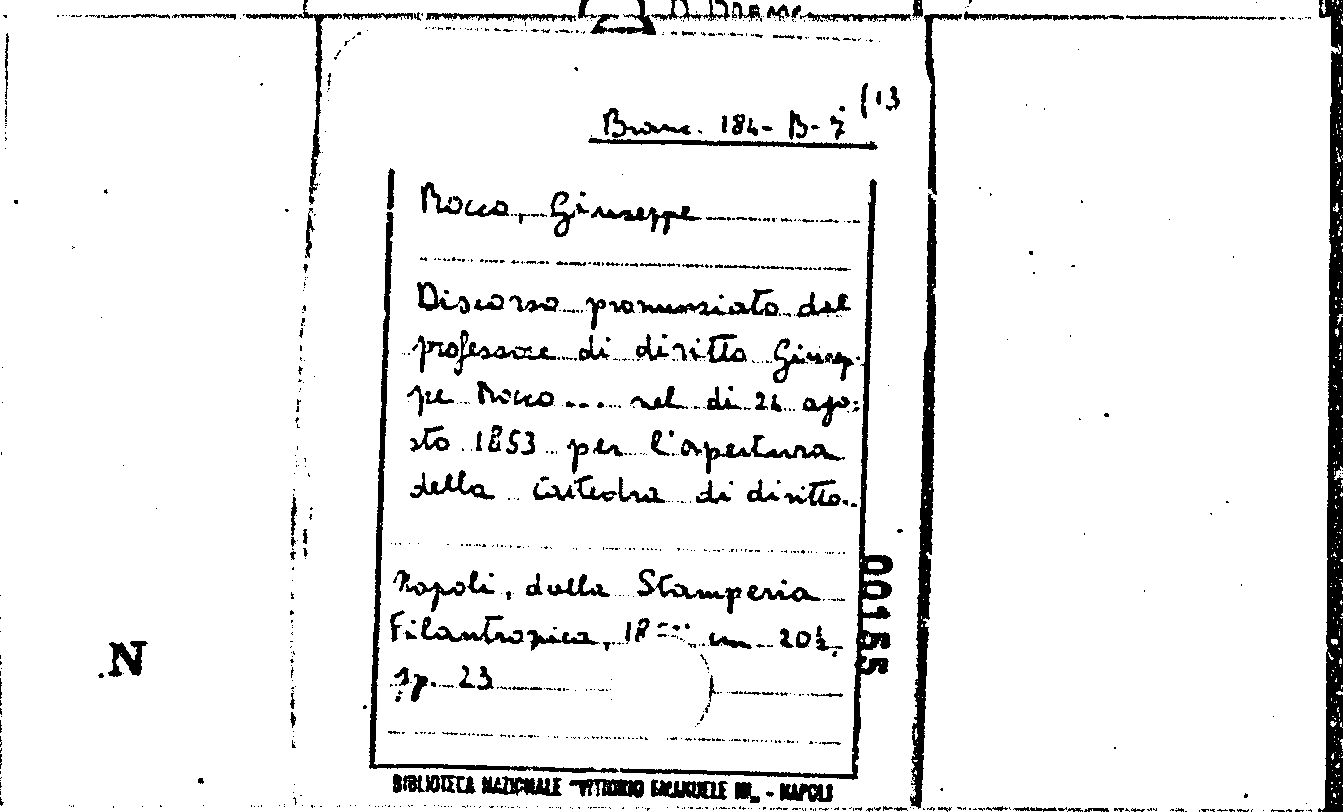 Branc. 184-B-7 (13
Rocco, Giuseppe
Discorso pronunziato dal
professore di diritto Giusep-
pe Rocco... nel di 24 ago-
sto 1853 per l'apertura
della Cattedra di diritto..
Napoli, dalla Stamperia
Filantropica, 18 cm 20½
pp. 23
00165
N
BIBLIOTECA NAZIONALE "VITTORIO EMANUELE III" - NAPOLI